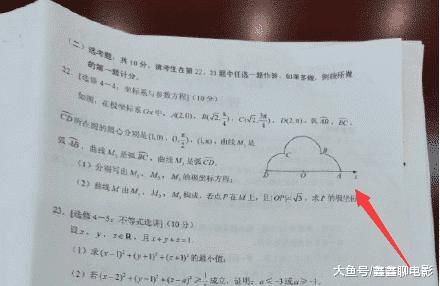 （二）选考题：共10分。请考生在第22、23题中任选一题作答。如果多做，则按所做
的第一题计分。
22. [选修4－4：坐标系与参数方程]（10分）
如图，在极坐标系Ox中，A(2,0)，B(√2,π/4)，C(√2,3π/4)，D(2,π)，弧AB，BC，
CD所在圆的圆心分别是(1,0)，(1,π/2)，(1,π)，曲线M₁是
弧AB，曲线M₂是弧BC，曲线M₃是弧CD.
C
B
D
O
A
x
（1）分别写出M₁，M₂，M₃的极坐标方程；
（2）曲线M由M₁，M₂，M₃构成，若点P在M上，且|OP|=√3，求P的极坐标
23. [选修4－5：不等式选讲]（10分）
设x，y，z∈R，且x+y+z=1.
（1）求(x－1)²+(y+1)²+(z+1)²的最小值；
（2）若(x－2)²+(y－1)²+(z－a)²≥1/3成立，证明：a≤－3或a≥－1.
大鱼号/鑫鑫聊电影